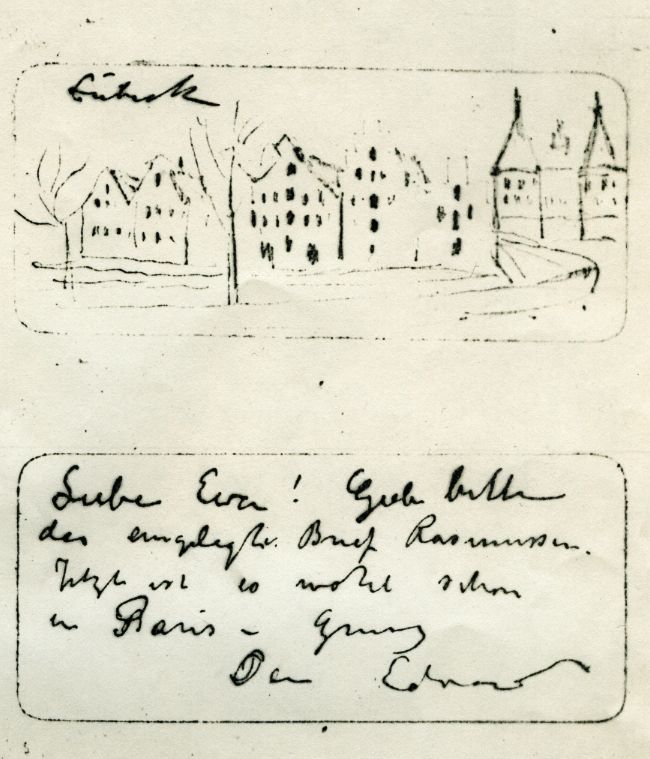 Lübeck
Liebe Eva! Gieb bitte
der eingelegte Brief Rasmussen.
Jetzt ist es wohl schon
in Paris – Gruss
Dein Edvard